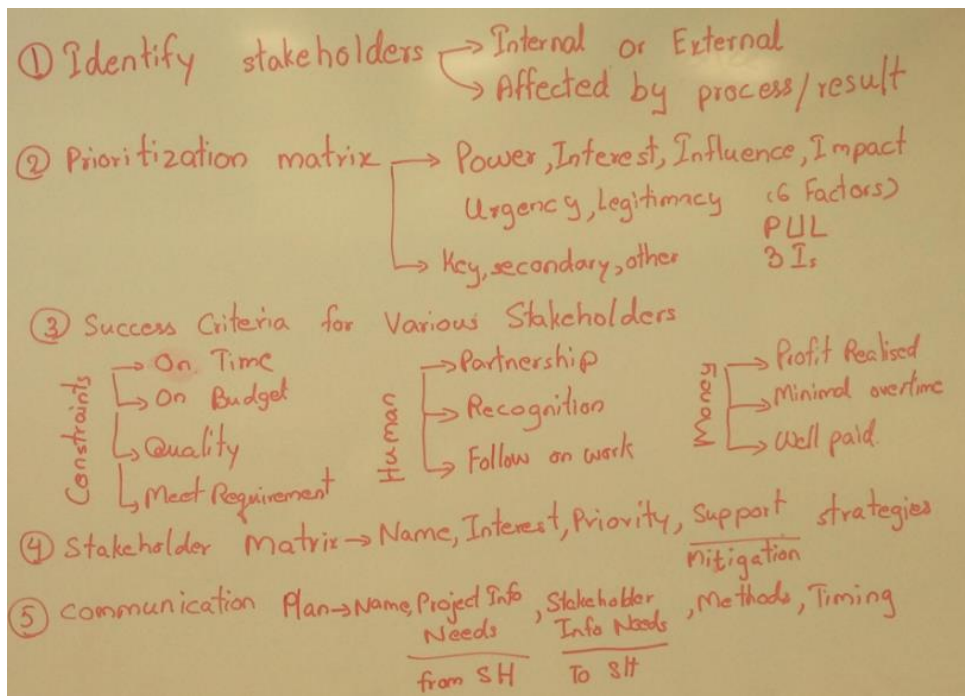 ① Identify stakeholders → Internal or External
→ Affected by process/result
② Prioritization matrix → Power, Interest, Influence, Impact
Urgency, Legitimacy (6 Factors)
PUL
→ Key, secondary, other 3 Is
③ Success Criteria for Various Stakeholders
Constraints
→ On Time
→ On Budget
→ Quality
→ Meet Requirement
Human
→ Partnership
→ Recognition
→ Follow on work
Money
→ Profit Realised
→ Minimal overtime
→ Well paid.
④ Stakeholder Matrix → Name, Interest, Priority, Support strategies
Mitigation
⑤ Communication Plan → Name, Project Info, Stakeholder, Methods, Timing
Needs Info Needs
from SH To SH